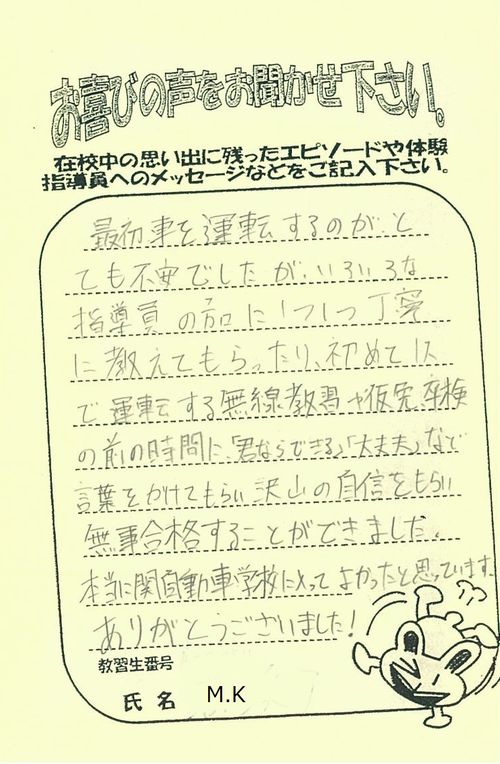 お喜びの声をお聞かせ下さい。
在校中の思い出に残ったエピソードや体験
指導員へのメッセージなどをご記入下さい。
最初車を運転するのが、と
ても不安でしたが、いろいろな
指導員の方に1つ1つ丁寧
に教えてもらったり、初めて1人
で運転する無線教習や仮免、卒検
の前の時間に、「君ならできる」「大丈夫」など
言葉をかけてもらい沢山の自信をもらい
無事合格することができました。
本当に関自動車学校に入ってよかったと思っています。
ありがとうございました!
教習生番号
氏名 M.K